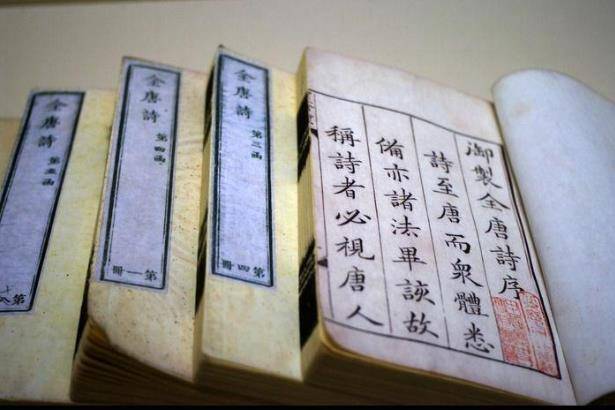 御製全唐詩序
詩至唐而衆體悉
備亦諸法畢該故
稱詩者必視唐人
全唐詩
第三函
第四冊
全唐詩
第四函
第一冊
全唐詩
第五函
第八